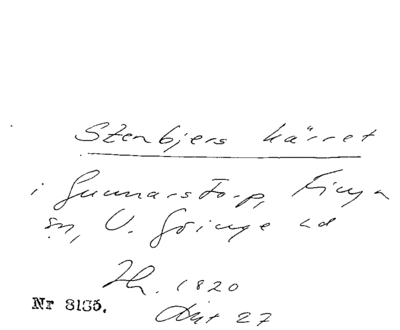 Stenbjers kärret
i Gunnarstorp, Finja
sn, V. Göinge hd
Th. 1820
Nr 3135.